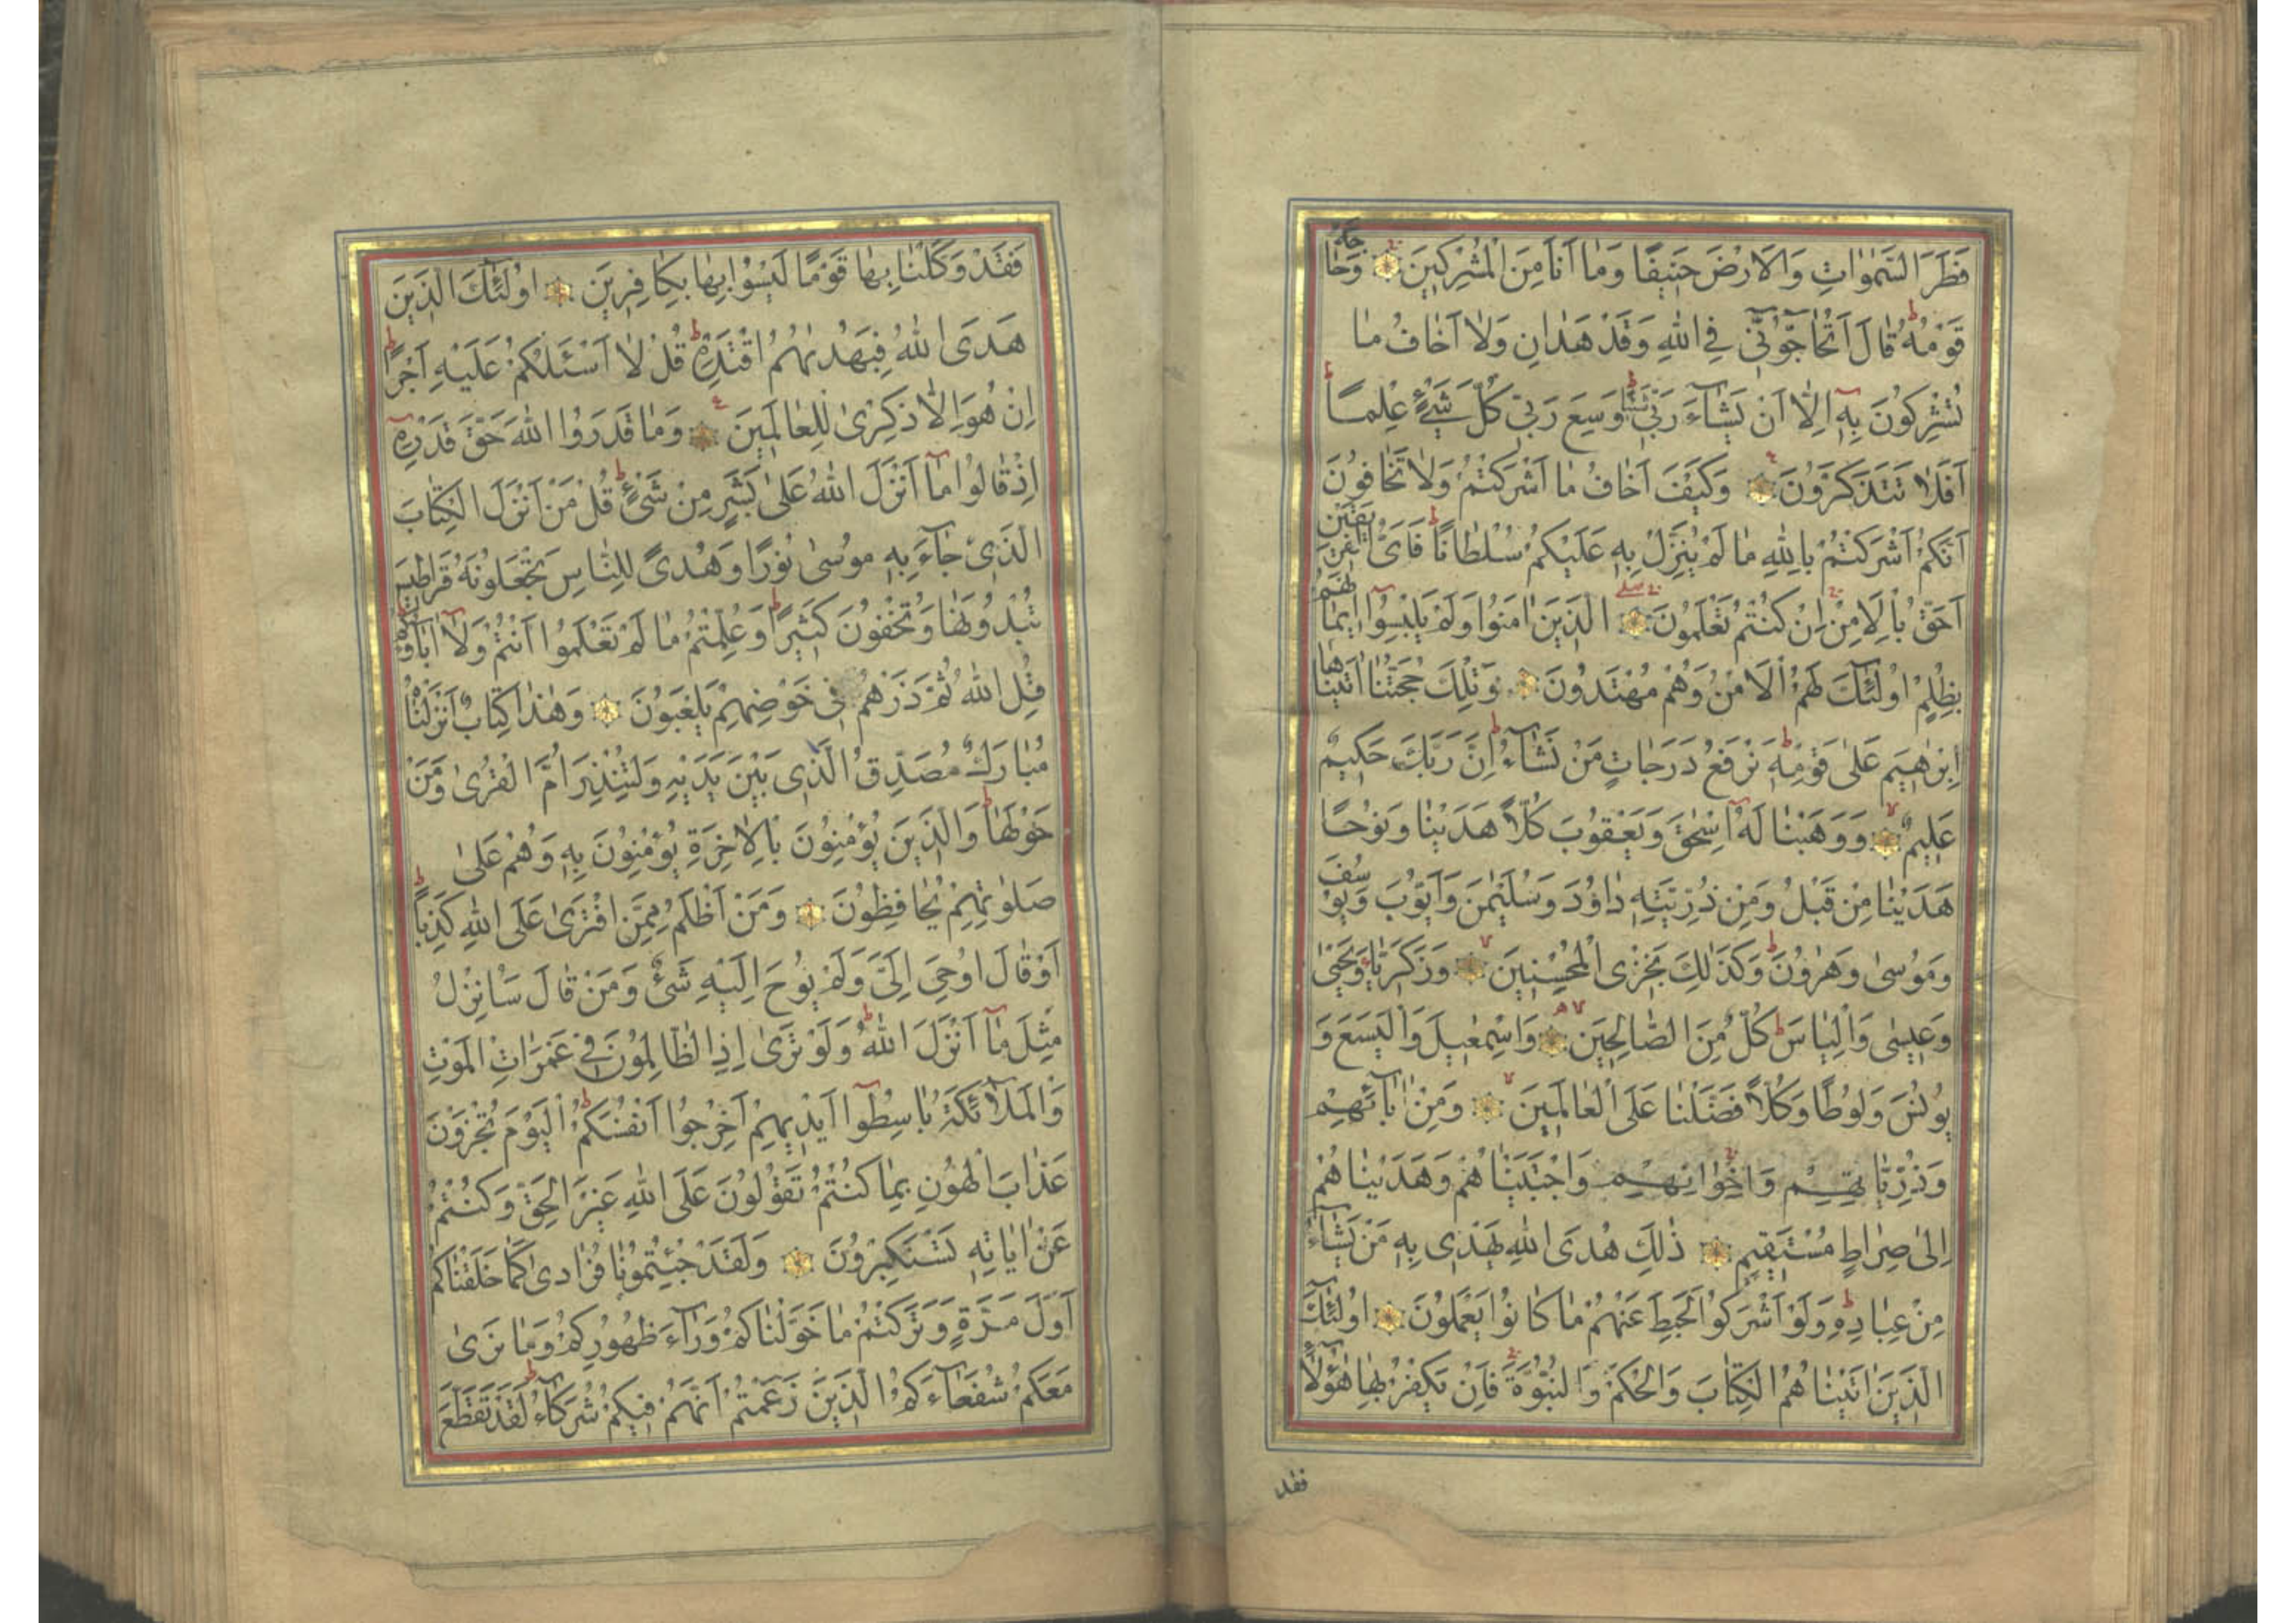 فَطَرَ السَّمٰوَاتِ وَالْاَرْضَ حَنِيفًا وَمَا اَنَا مِنَ الْمُشْرِكِينَ وَحَاجَّهُ
قَوْمُهُ قَالَ اَتُحَاجُّوٓنِّي فِي اللهِ وَقَدْ هَدَانِ وَلَا اَخَافُ مَا
تُشْرِكُونَ بِهِٓ اِلَّا اَنْ يَشَآءَ رَبِّي شَيْئًا وَسِعَ رَبِّي كُلَّ شَيْءٍ عِلْمًا
اَفَلَا تَتَذَكَّرُونَ وَكَيْفَ اَخَافُ مَا اَشْرَكْتُمْ وَلَا تَخَافُونَ
اَنَّكُمْ اَشْرَكْتُمْ بِاللهِ مَا لَمْ يُنَزِّلْ بِهِ عَلَيْكُمْ سُلْطَانًا فَاَيُّ الْفَرِيقَيْنِ
اَحَقُّ بِالْاَمْنِ اِنْ كُنْتُمْ تَعْلَمُونَ الَّذِينَ اٰمَنُوا وَلَمْ يَلْبِسُوٓا اِيمَانَهُمْ
بِظُلْمٍ اُولٰٓئِكَ لَهُمُ الْاَمْنُ وَهُمْ مُهْتَدُونَ وَتِلْكَ حُجَّتُنَا اٰتَيْنَاهَا
اِبْرٰهِيمَ عَلٰى قَوْمِهِ نَرْفَعُ دَرَجَاتٍ مَنْ نَشَآءُ اِنَّ رَبَّكَ حَكِيمٌ
عَلِيمٌ وَوَهَبْنَا لَهُٓ اِسْحٰقَ وَيَعْقُوبَ كُلًّا هَدَيْنَا وَنُوحًا
هَدَيْنَا مِنْ قَبْلُ وَمِنْ ذُرِّيَّتِهِ دَاوُدَ وَسُلَيْمٰنَ وَاَيُّوبَ وَيُوسُفَ
وَمُوسٰى وَهٰرُونَ وَكَذٰلِكَ نَجْزِي الْمُحْسِنِينَ وَزَكَرِيَّاءَ وَيَحْيٰى
وَعِيسٰى وَاِلْيَاسَ كُلٌّ مِنَ الصَّالِحِينَ وَاِسْمٰعِيلَ وَالْيَسَعَ وَ
يُونُسَ وَلُوطًا وَكُلًّا فَضَّلْنَا عَلَى الْعَالَمِينَ وَمِنْ اٰبَآئِهِمْ
وَذُرِّيَّاتِهِمْ وَاِخْوَانِهِمْ وَاجْتَبَيْنَاهُمْ وَهَدَيْنَاهُمْ
اِلٰى صِرَاطٍ مُسْتَقِيمٍ ذٰلِكَ هُدَى اللهِ يَهْدِي بِهِ مَنْ يَشَآءُ
مِنْ عِبَادِهِ وَلَوْ اَشْرَكُوا لَحَبِطَ عَنْهُمْ مَا كَانُوا يَعْمَلُونَ اُولٰٓئِكَ
الَّذِينَ اٰتَيْنَاهُمُ الْكِتَابَ وَالْحُكْمَ وَالنُّبُوَّةَ فَاِنْ يَكْفُرْ بِهَا هٰٓؤُلَآءِ
فقد
فَقَدْ وَكَّلْنَا بِهَا قَوْمًا لَيْسُوا بِهَا بِكَافِرِينَ اُولٰٓئِكَ الَّذِينَ
هَدَى اللهُ فَبِهُدٰيهُمُ اقْتَدِهْ قُلْ لَا اَسْئَلُكُمْ عَلَيْهِ اَجْرًا
اِنْ هُوَ اِلَّا ذِكْرٰى لِلْعَالَمِينَ وَمَا قَدَرُوا اللهَ حَقَّ قَدْرِهِٓ
اِذْ قَالُوا مَآ اَنْزَلَ اللهُ عَلٰى بَشَرٍ مِنْ شَيْءٍ قُلْ مَنْ اَنْزَلَ الْكِتَابَ
الَّذِي جَآءَ بِهِ مُوسٰى نُورًا وَهُدًى لِلنَّاسِ تَجْعَلُونَهُ قَرَاطِيسَ
تُبْدُونَهَا وَتُخْفُونَ كَثِيرًا وَعُلِّمْتُمْ مَا لَمْ تَعْلَمُوا اَنْتُمْ وَلَآ اٰبَاؤُكُمْ
قُلِ اللهُ ثُمَّ ذَرْهُمْ فِي خَوْضِهِمْ يَلْعَبُونَ وَهٰذَا كِتَابٌ اَنْزَلْنَاهُ
مُبَارَكٌ مُصَدِّقُ الَّذِي بَيْنَ يَدَيْهِ وَلِتُنْذِرَ اُمَّ الْقُرٰى وَمَنْ
حَوْلَهَا وَالَّذِينَ يُؤْمِنُونَ بِالْاٰخِرَةِ يُؤْمِنُونَ بِهِ وَهُمْ عَلٰى
صَلٰوتِهِمْ يُحَافِظُونَ وَمَنْ اَظْلَمُ مِمَّنِ افْتَرٰى عَلَى اللهِ كَذِبًا
اَوْ قَالَ اُوحِيَ اِلَيَّ وَلَمْ يُوحَ اِلَيْهِ شَيْءٌ وَمَنْ قَالَ سَاُنْزِلُ
مِثْلَ مَآ اَنْزَلَ اللهُ وَلَوْ تَرٰى اِذِ الظَّالِمُونَ فِي غَمَرَاتِ الْمَوْتِ
وَالْمَلٰٓئِكَةُ بَاسِطُوٓا اَيْدِيهِمْ اَخْرِجُوا اَنْفُسَكُمْ اَلْيَوْمَ تُجْزَوْنَ
عَذَابَ الْهُونِ بِمَا كُنْتُمْ تَقُولُونَ عَلَى اللهِ غَيْرَ الْحَقِّ وَكُنْتُمْ
عَنْ اٰيَاتِهِ تَسْتَكْبِرُونَ وَلَقَدْ جِئْتُمُونَا فُرَادٰى كَمَا خَلَقْنَاكُمْ
اَوَّلَ مَرَّةٍ وَتَرَكْتُمْ مَا خَوَّلْنَاكُمْ وَرَآءَ ظُهُورِكُمْ وَمَا نَرٰى
مَعَكُمْ شُفَعَآءَكُمُ الَّذِينَ زَعَمْتُمْ اَنَّهُمْ فِيكُمْ شُرَكَآءُ لَقَدْ تَقَطَّعَ